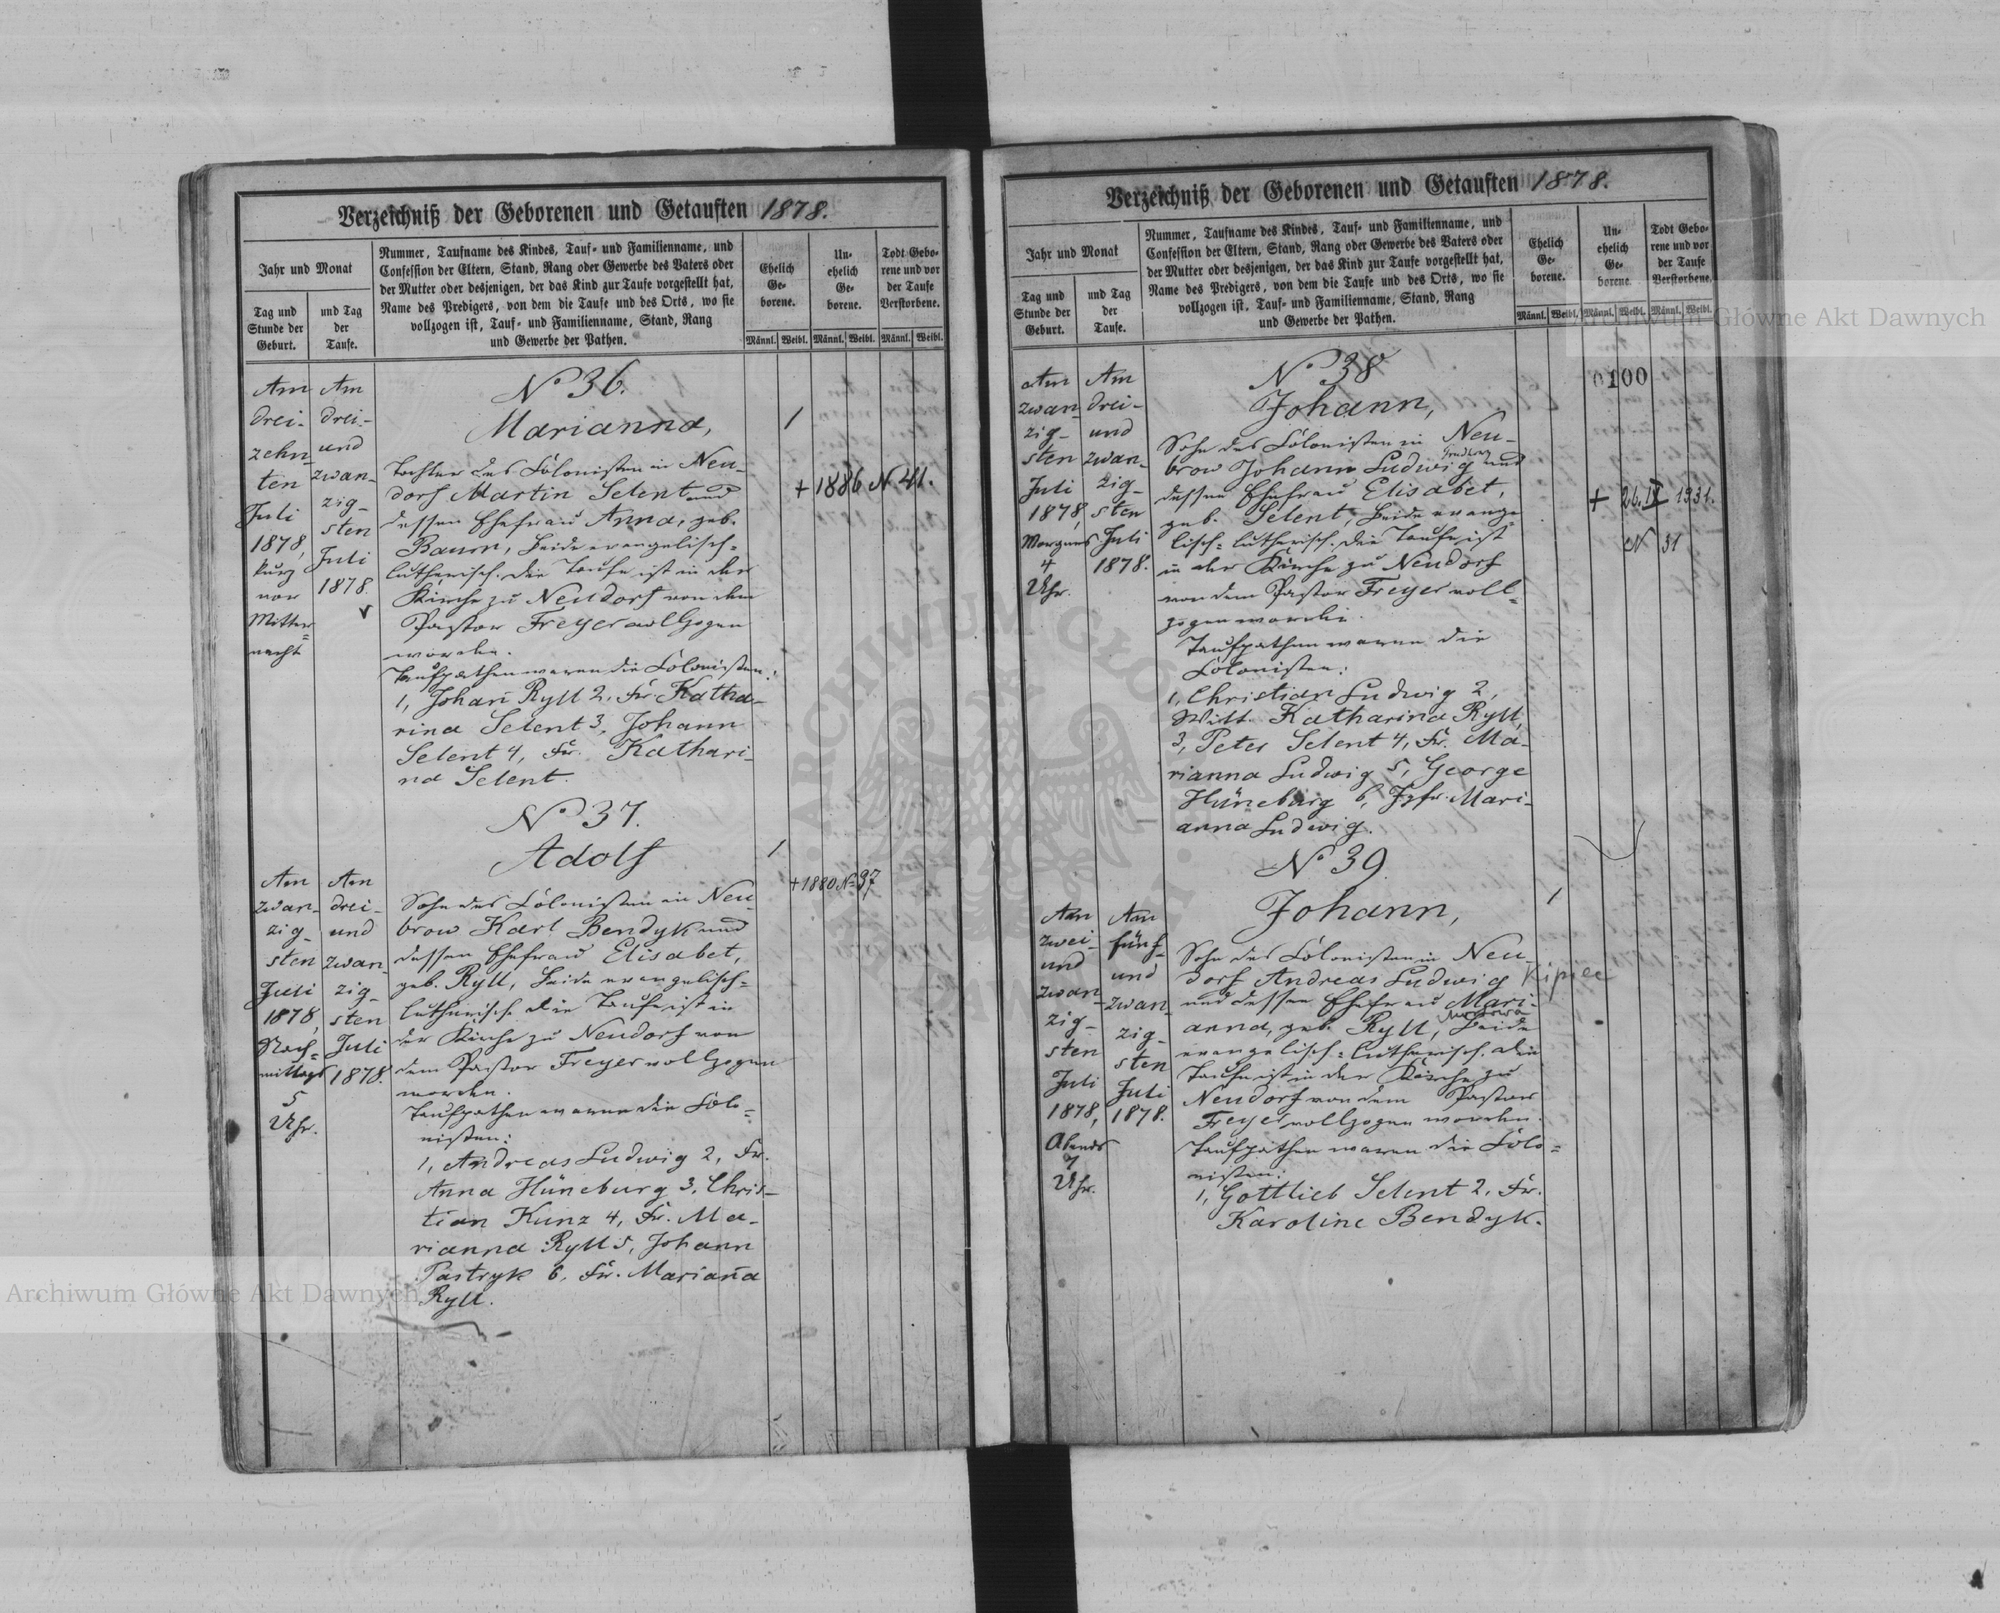 Verzeichniß der Geborenen und Getauften 1878.
Jahr und Monat
Tag und
Stunde der
Geburt.
und Tag
der
Taufe.
Nummer, Taufname des Kindes, Tauf- und Familienname, und
Confession der Eltern, Stand, Rang oder Gewerbe des Vaters oder
der Mutter oder desjenigen, der das Kind zur Taufe vorgestellt hat,
Name des Predigers, von dem die Taufe und des Orts, wo sie
vollzogen ist, Tauf- und Familienname, Stand, Rang
und Gewerbe der Pathen.
Ehelich
Ge-
borene.
Un-
ehelich
Ge-
borene.
Todt Gebo-
rene und vor
der Taufe
Verstorbene.
Männl. Weibl. Männl. Weibl. Männl. Weibl.
Am
drei-
zehn-
ten
Juli
1878,
kurz
vor
Mitter-
nacht
Am
drei-
und
zwan-
zig-
sten
Juli
1878.
No 36.
Marianna,
Tochter des Colonisten in Neu-
dorf Martin Selent und
dessen Ehefrau Anna, geb.
Baum, beide evangelisch-
lutherisch. Die Taufe ist in der
Kirche zu Neudorf von dem
Pastor Freyer vollzogen
worden.
Taufpathen waren die Colonisten:
1, Johañ Ryll 2, Fr. Katha-
rina Selent 3, Johann
Selent 4, Fr. Kathari-
na Selent.
1
+ 1886 N 41.
Am
zwan-
zig-
sten
Juli
1878,
Nach-
mittags
5
Uhr.
Am
drei-
und
zwan-
zig-
sten
Juli
1878.
No 37.
Adolf
Sohn des Colonisten in Neu-
brow Karl Bendyk und
dessen Ehefrau Elisabet,
geb. Ryll, beide evangelisch-
lutherisch. Die Taufe ist in
der Kirche zu Neudorf von
dem Pastor Freyer vollzogen
worden.
Taufpathen waren die Colo-
nisten:
1, Andreas Ludwig 2, Fr.
Anna Hüneburg 3, Chris-
tian Kunz 4, Fr. Ma-
rianna Ryll 5, Johann
Pastryk 6, Fr. Mariaña
Ryll.
1
+ 1880 No 37
Verzeichniß der Geborenen und Getauften 1878.
Jahr und Monat
Tag und
Stunde der
Geburt.
und Tag
der
Taufe.
Nummer, Taufname des Kindes, Tauf- und Familienname, und
Confession der Eltern, Stand, Rang oder Gewerbe des Vaters oder
der Mutter oder desjenigen, der das Kind zur Taufe vorgestellt hat,
Name des Predigers, von dem die Taufe und des Orts, wo sie
vollzogen ist, Tauf- und Familienname, Stand, Rang
und Gewerbe der Pathen.
Ehelich
Ge-
borene.
Un-
ehelich
Ge-
borene.
Todt Gebo-
rene und vor
der Taufe
Verstorbene.
Männl. Weibl. Männl. Weibl. Männl. Weibl.
Am
zwan-
zig-
sten
Juli
1878,
Morgens
4
Uhr.
Am
drei-
und
zwan-
zig-
sten
Juli
1878.
No 38
Johann,
Sohn des Colonisten in Neu-
brow Johann Ludwig und
dessen Ehefrau Elisabet,
geb. Selent, beide evange-
lisch-lutherisch. Die Taufe ist
in der Kirche zu Neudorf
von dem Pastor Freyer voll-
zogen worden.
Taufpathen waren die
Colonisten:
1, Christian Ludwig 2,
Witt. Katharina Ryll,
3, Peter Selent 4, Fr. Ma-
rianna Ludwig 5, George
Hüneburg 6, Jgfr. Mari-
anna Ludwig.
0100
+ 26.IX 1931.
N 31
Am
zwei-
und
zwan-
zig-
sten
Juli
1878,
Abends
7
Uhr.
Am
fünf-
und
zwan-
zig-
sten
Juli
1878.
No 39
Johann,
Sohn des Colonisten in Neu-
dorf Andreas Ludwig
und dessen Ehefrau Mari-
anna, geb. Ryll, beide
evangelisch-lutherisch. Die
Taufe ist in der Kirche zu
Neudorf von dem Pastor
Freyer vollzogen worden.
Taufpathen waren die Colo-
nisten:
1, Gottlieb Selent 2, Fr.
Karoline Bendyk.
1
Archiwum Główne Akt Dawnych
Archiwum Główne Akt Dawnych